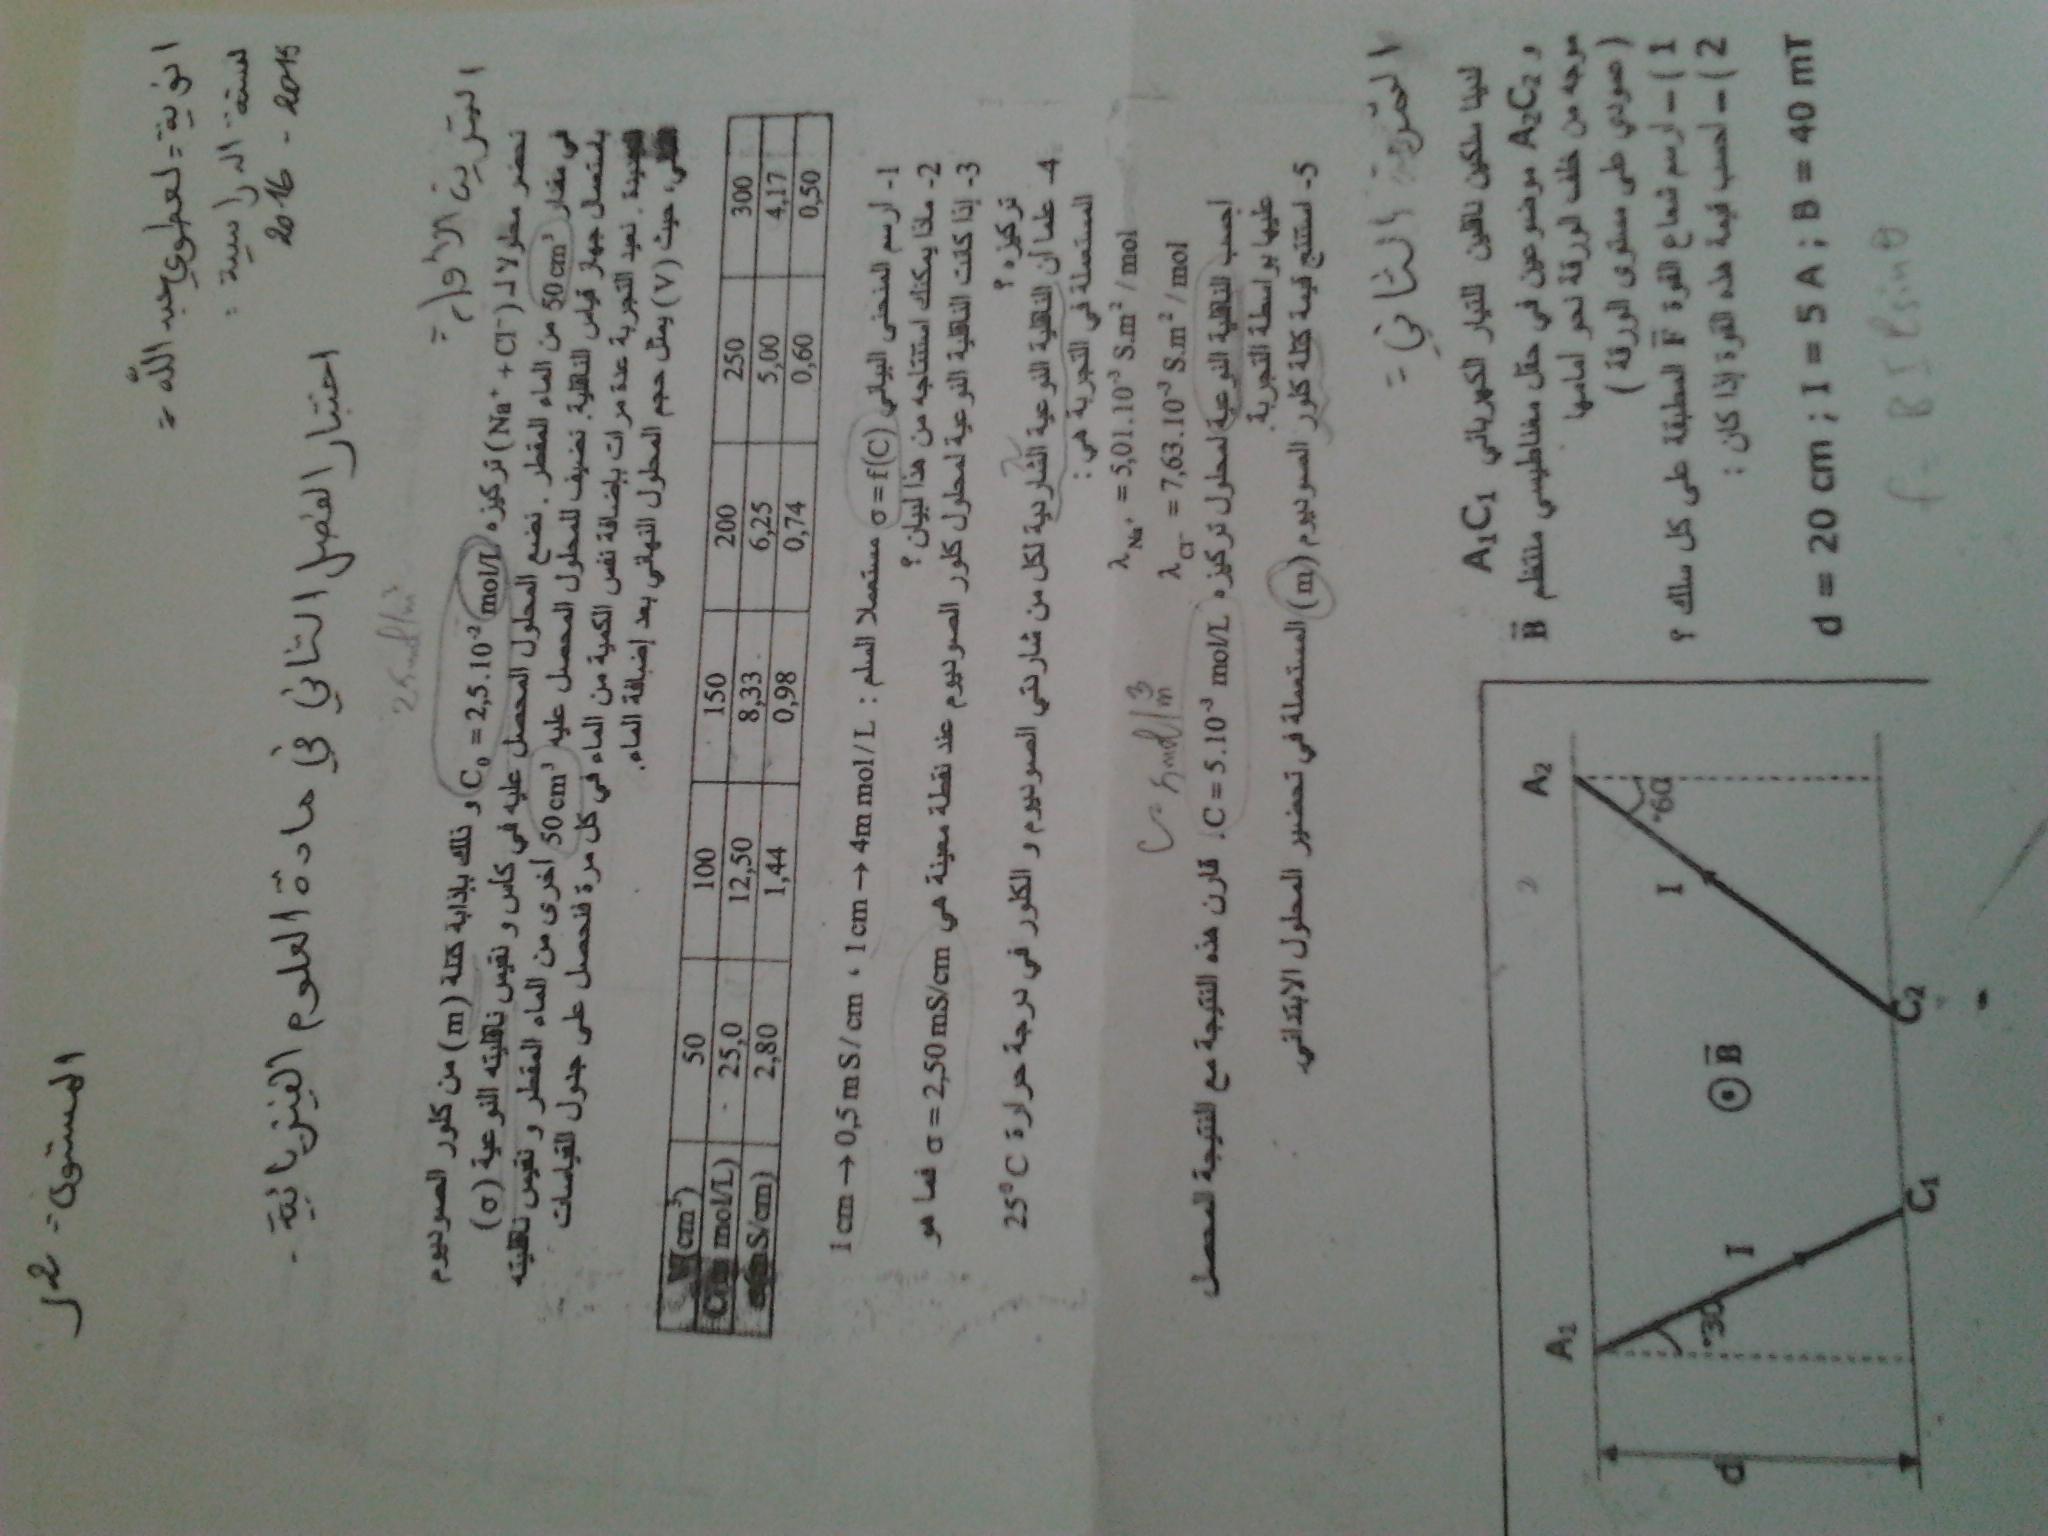 المستوى = 2 ر
ثانوية = لعطوي عبد الله =
لسنة الدراسية :
2016 - 2015
اختبار الفصل الثاني في مادة العلوم الفيزيائية -
التمرين الأول =
25 mol/m³
نحضر محلولا لـ (Na⁺ + Cl⁻) تركيزه C₀ = 2,5.10⁻² mol/L و ذلك بإذابة كتلة (m) من كلور الصوديوم
في مقدار 50 cm³ من الماء المقطر . نضع المحلول المحصل عليه في كأس و نقيس ناقليته النوعية (σ)
باستعمال جهاز قياس الناقلية. نضيف للمحلول المحصل عليه 50 cm³ أخرى من الماء المقطر و نقيس ناقليته
الجديدة . نعيد التجربة عدة مرات بإضافة نفس الكمية من الماء في كل مرة فنحصل على جدول القياسات
حيث (V) يمثل حجم المحلول النهائي بعد إضافة الماء.
V(cm³) 50 100 150 200 250 300
mol/L) 25,0 12,50 8,33 6,25 5,00 4,17
S/cm) 2,80 1,44 0,98 0,74 0,60 0,50
1- ارسم المنحنى البياني σ = f(C) مستعملا السلم : 1cm → 0,5 mS/cm ، 1cm → 4m mol/L
2- ماذا يمكنك استنتاجه من هذا البيان ؟
3- إذا كانت الناقلية النوعية لمحلول كلور الصوديوم عند نقطة معينة هي σ = 2,50 mS/cm فما هو
تركيزه ؟
4- علما أن الناقلية النوعية الشاردية لكل من شاردتي الصوديوم و الكلور في درجة حرارة 25°C
المستعملة في التجربة هي :
λ Na⁺ = 5,01.10⁻³ S.m² / mol
λ Cl⁻ = 7,63.10⁻³ S.m² / mol
C = 5 mol/m³
احسب الناقلية النوعية لمحلول تركيزه C = 5.10⁻³ mol/L. قارن هذه النتيجة مع النتيجة المحصل
عليها بواسطة التجربة.
5- استنتج قيمة كتلة كلور الصوديوم (m) المستعملة في تحضير المحلول الابتدائي.
التمرين الثاني =
لدينا سلكين ناقلين للتيار الكهربائي A₁C₁
و A₂C₂ موضوعين في حقل مغناطيسي منتظم B
موجه من خلف الورقة نحو أمامها
( عمودي على مستوى الورقة )
1 ) – ارسم شعاع القوة F المطبقة على كل سلك ؟
2 ) – احسب قيمة هذه القوة إذا كان :
d = 20 cm ; I = 5 A ; B = 40 mT
f = B I l sin θ
A₁ A₂
30° 60°
I I
d
B
C₁ C₂